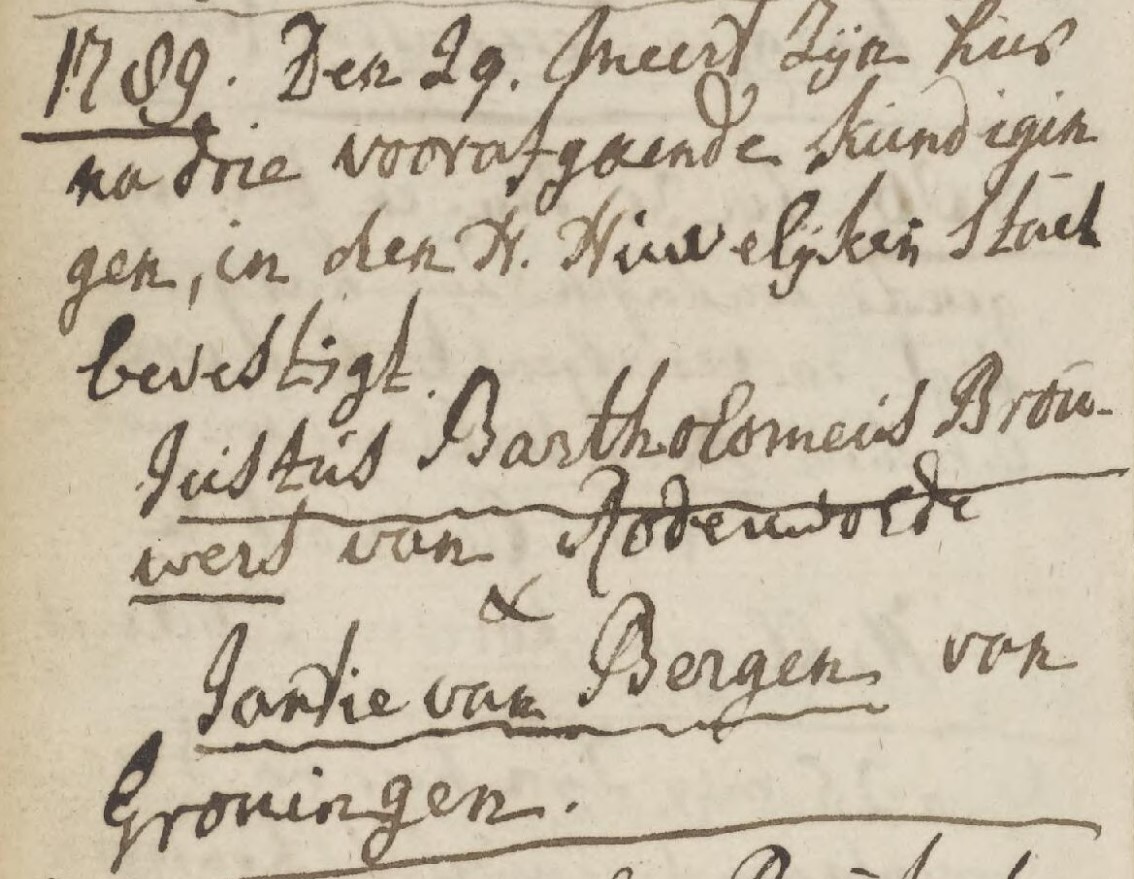 1789. Den 29. Meert Zijn hier
na drie voorafgaende kundigin
gen, in den H. Huwelijken Staet
bevestigt.
Justus Bartholomeus Brou-
wers van Rodenwolde
&
Jantie van Bergen van
Groningen.